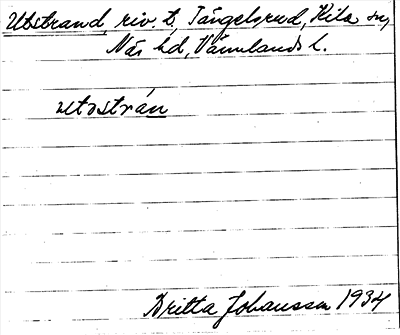 Utstrand, riv. t., Tångelsrud, Kila sn,
Näs hd, Värmlands l.
utostrán
Britta Johansson 1934